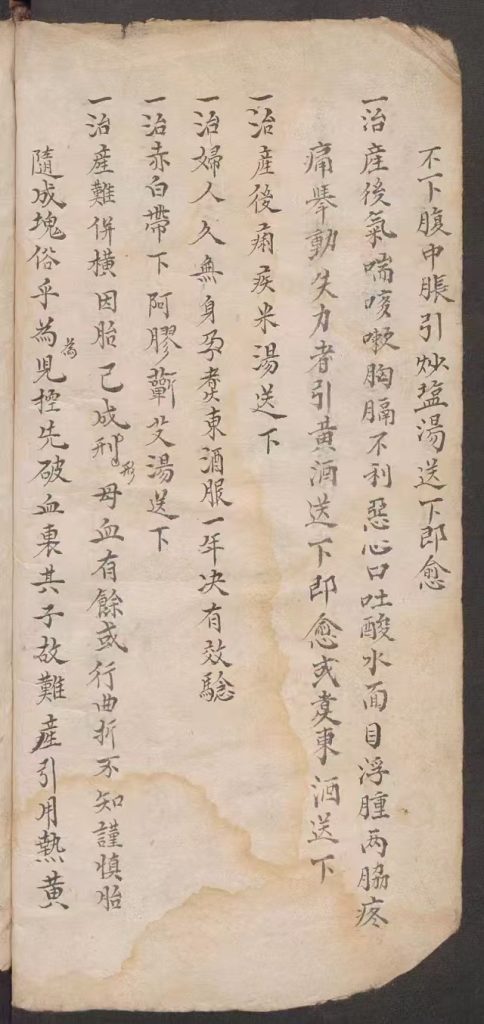 不下腹中脹引炒盐湯送下即愈
一治產後氣喘咳嗽胸膈不利惡心口吐酸水面目浮腫两脇疼
痛舉動失力者引黃酒送下即愈或煑東酒送下
一治產後痢疾米湯送下
一治婦人久無身孕煑東酒服一年决有效騐
一治赤白帶下阿膠蘄艾湯送下
一治產難併橫因胎已成刑形母血有餘或行曲折不知謹慎胎
隨成塊俗乎為児枕先破血裹其子故難產引用熱黃
為